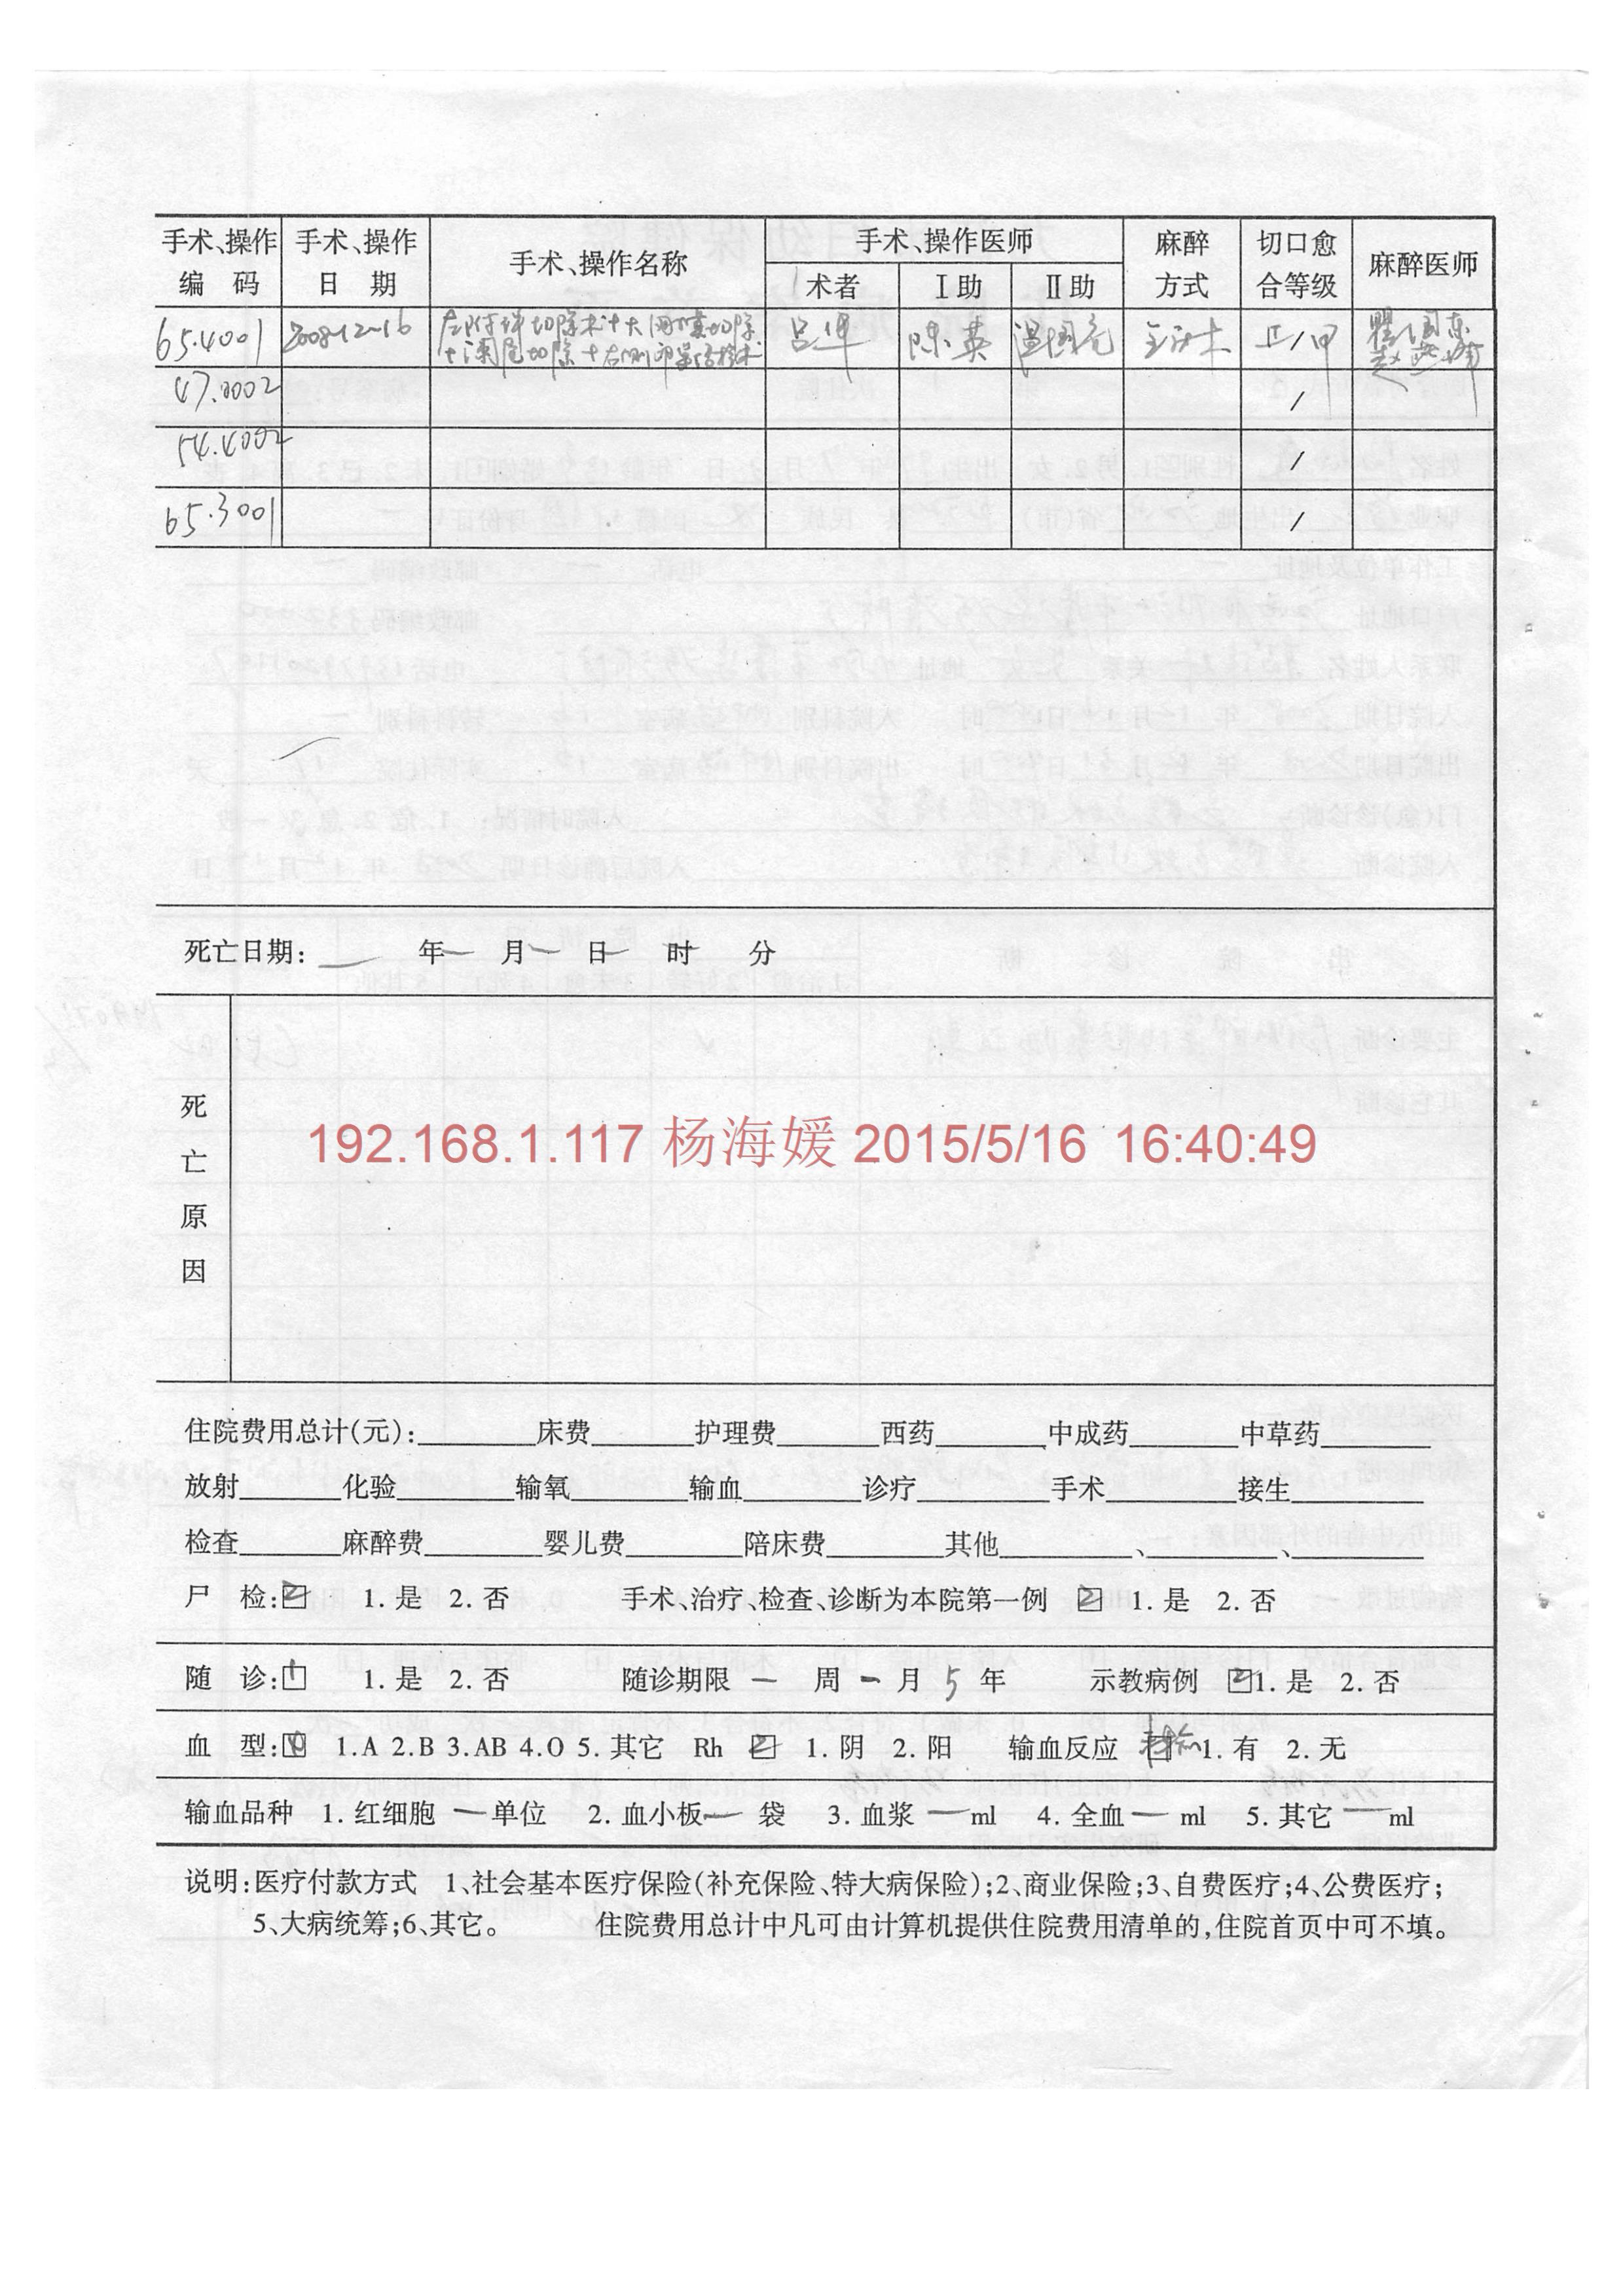 手术、操作 手术、操作 手术、操作名称 手术、操作医师 麻醉 切口愈 麻醉医师
编 码 日 期 术者 Ⅰ助 Ⅱ助 方式 合等级
65.4001 2008-12-16 左附件切除术+大网膜切除 吕 陈英 温国亮 全麻 /甲
+阑尾切除+右侧卵巢活检术
47.0002 /
54.4002 /
65.3001 /
死亡日期: — 年— 月— 日— 时 分
死亡原因
192.168.1.117 杨海媛 2015/5/16 16:40:49
住院费用总计(元):________床费________护理费________西药________中成药________中草药________
放射________化验________输氧________输血________诊疗________手术________接生________
检查________麻醉费________婴儿费________陪床费________其他________、________、________
尸 检:2 1. 是 2. 否 手术、治疗、检查、诊断为本院第一例 2 1. 是 2. 否
随 诊:1 1. 是 2. 否 随诊期限 — 周 - 月 5 年 示教病例 2 1. 是 2. 否
血 型: 1.A 2.B 3.AB 4.O 5. 其它 Rh 2 1. 阴 2. 阳 输血反应 1. 有 2. 无
输血品种 1. 红细胞 —单位 2. 血小板— 袋 3. 血浆 —ml 4. 全血— ml 5. 其它 —ml
说明:医疗付款方式 1、社会基本医疗保险(补充保险、特大病保险);2、商业保险;3、自费医疗;4、公费医疗;
5、大病统筹;6、其它。 住院费用总计中凡可由计算机提供住院费用清单的,住院首页中可不填。